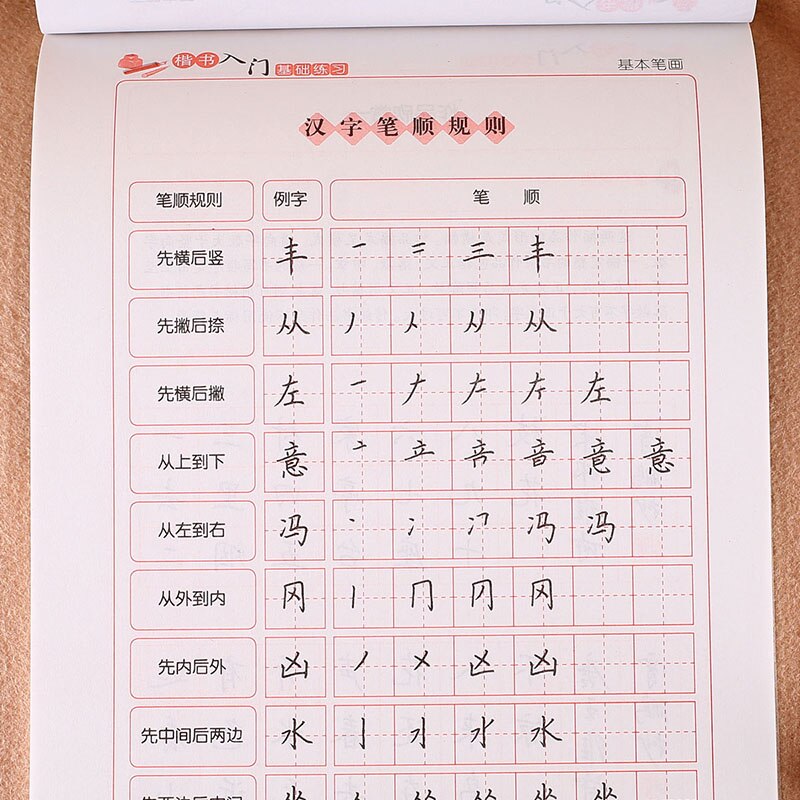 楷书入门 基础练习 基本笔画
汉字笔顺规则
笔顺规则 例字 笔顺
先横后竖 丰 一 二 三 丰
先撇后捺 从 丿 人 从
先横后撇 左 一 𠂇 左
从上到下 意 亠 立 音 意
从左到右 冯 丶 冫 冯
从外到内 冈 丨 冂 冈
先内后外 凶 丿 㐅 凶
先中间后两边 水 亅 水